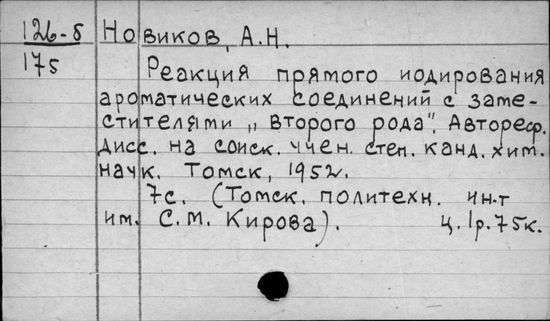 126-5
175
Новиков, А.Н.
Реакция прямого иодирования
ароматических соединений с заме-
стителями „второго рода". Автореф.
дисс. на соиск. учен. степ. канд. хим.
наук. Томск, 1952.
7с. (Томск. политехн. ин-т
им. С.М. Кирова). ц. 1р.75к.